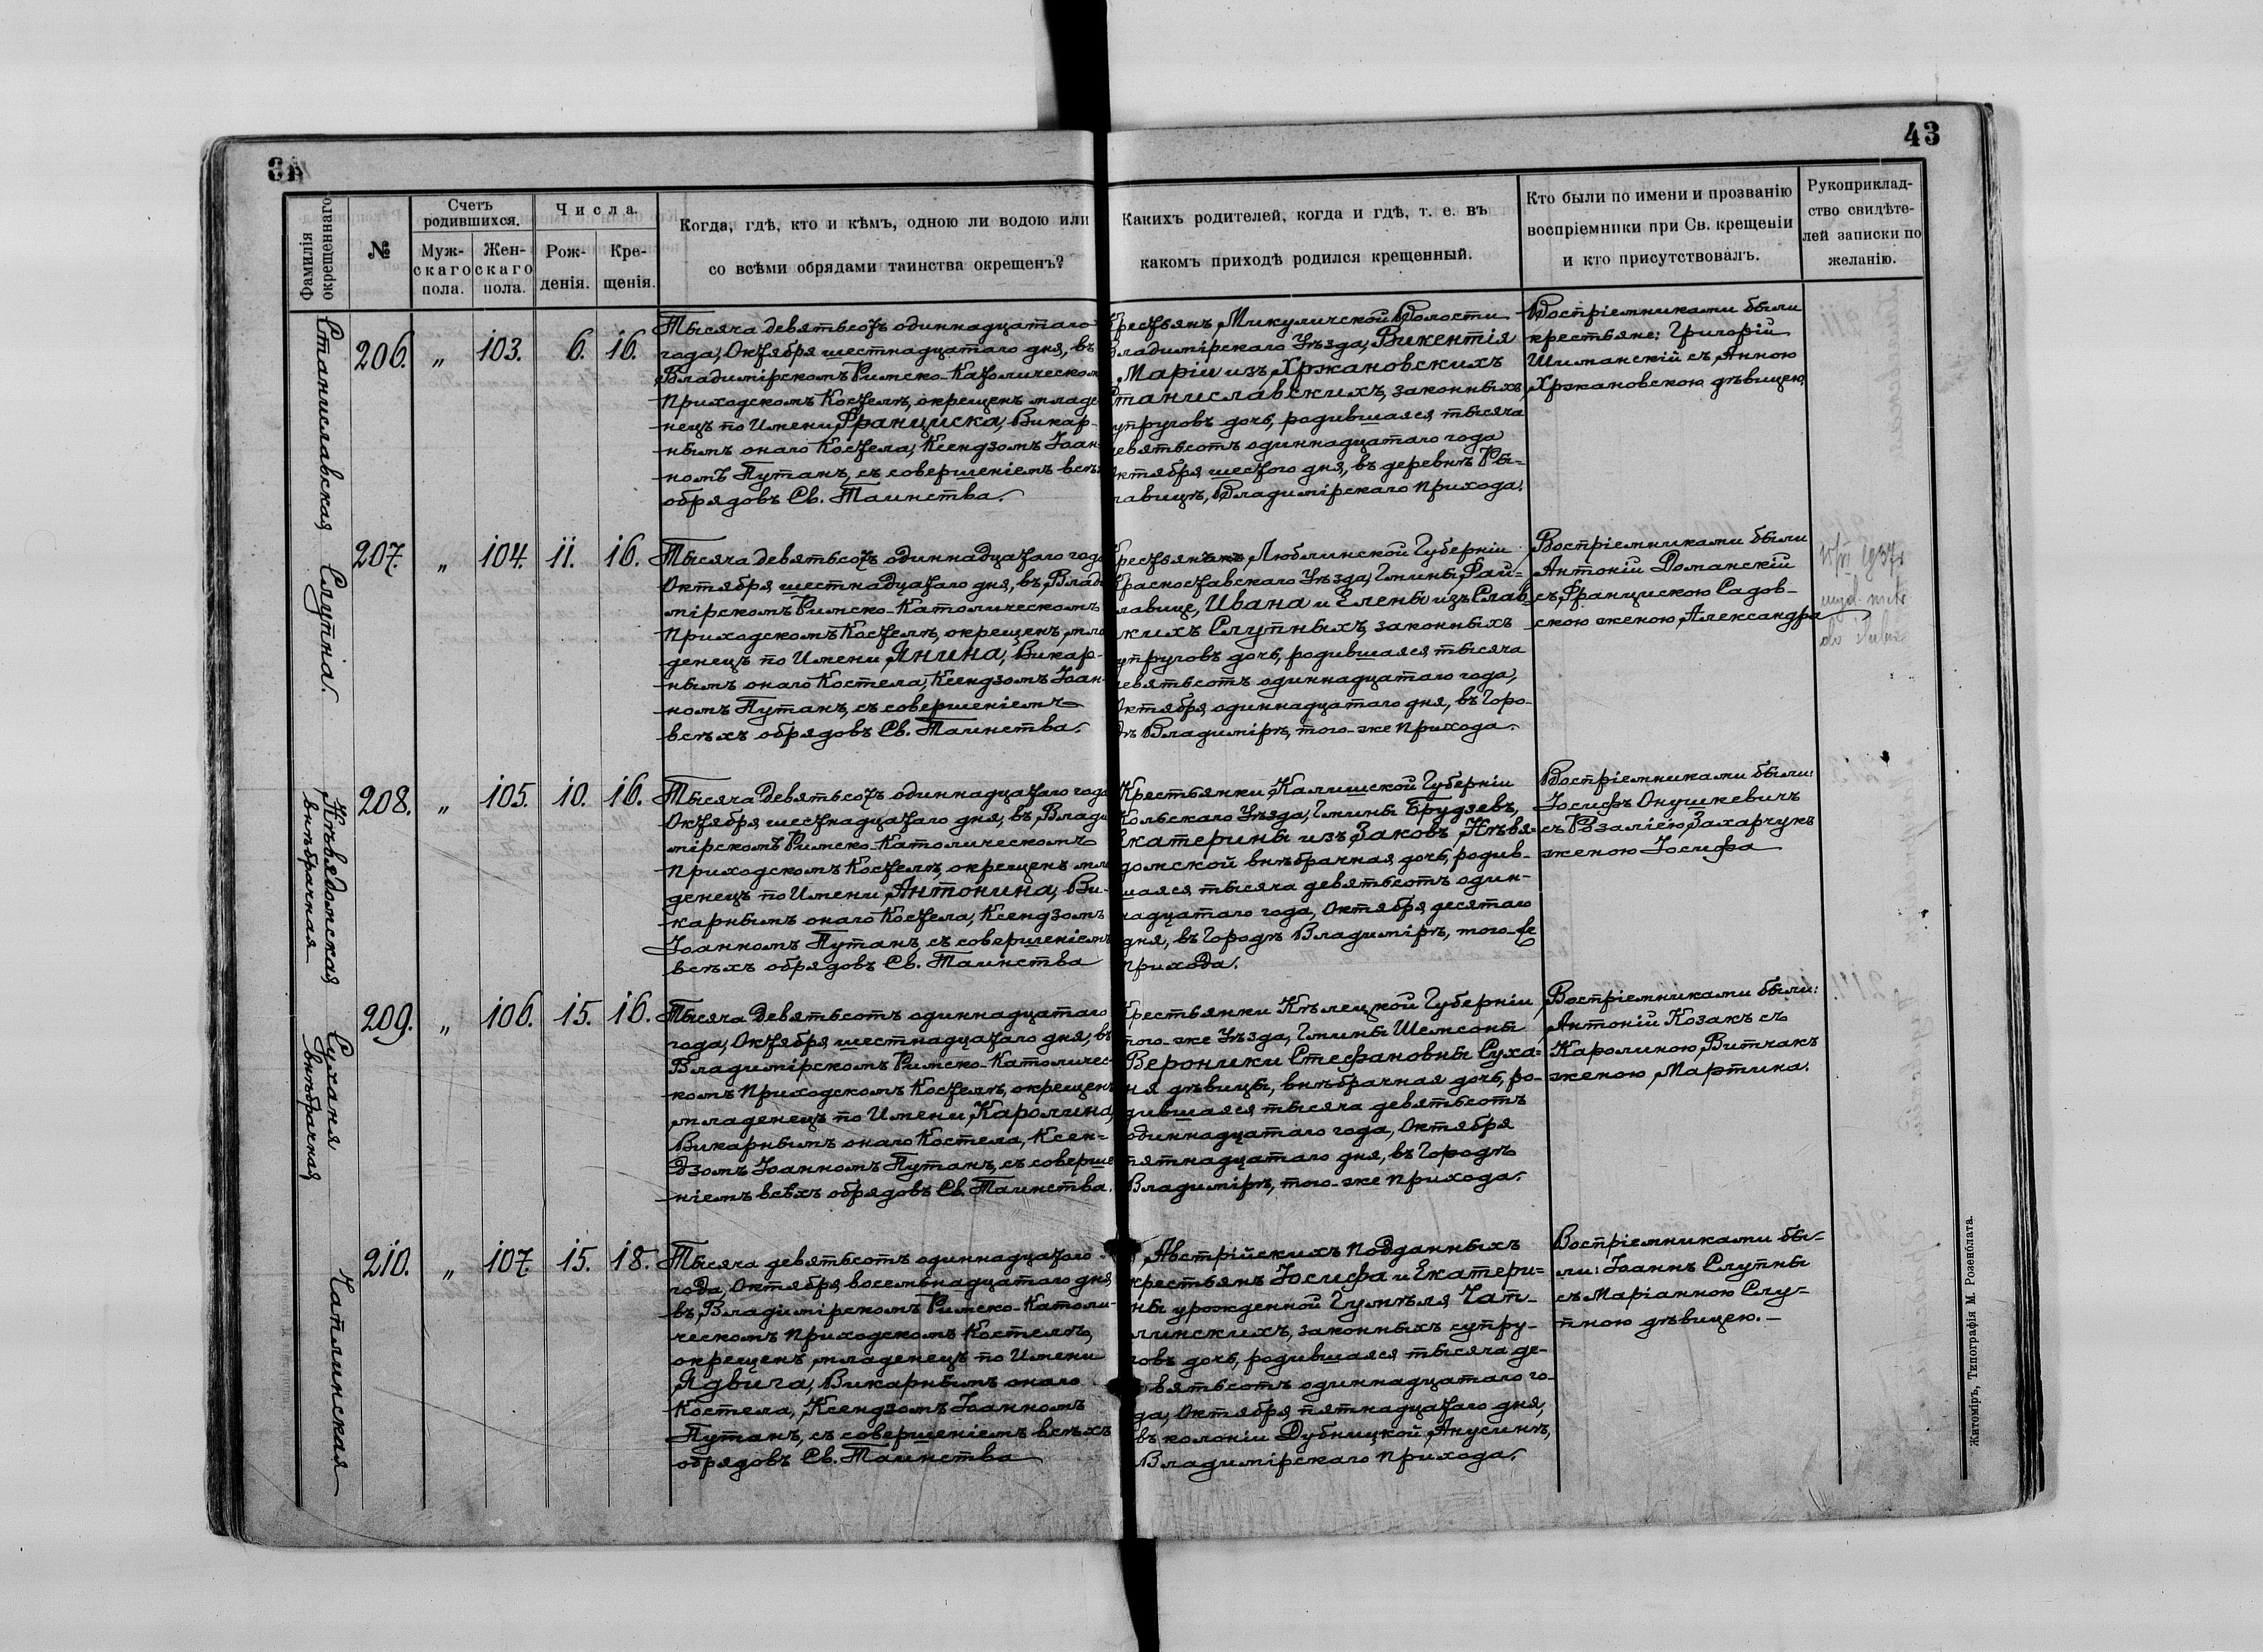 43
Фамилія
окрещеннаго
№
Счетъ
родившихся.
Муж-
скаго
пола.
Жен-
скаго
пола.
Числа.
Рож-
денія.
Кре-
щенія.
Когда, гдѣ, кто и кѣмъ, одною ли водою или
со всѣми обрядами таинства окрещенъ?
Какихъ родителей, когда и гдѣ, т. е. въ
какомъ приходѣ родился крещенный.
Кто были по имени и прозванію
воспріемники при Св. крещеніи
и кто присутствовалъ.
Рукоприклад-
ство свидѣте-
лей записки по
желанію.
Станиславская
206. „ 103. 6. 16.
Тысяча девятьсотъ одиннадцатаго
года, Октября шестнадцатаго дня, въ
Владимірскомъ Римско-Католическом
Приходскомъ Костелѣ, окрещенъ младе
нецъ по Имени Франциска, Викар-
нымъ онаго Костела, Ксендзомъ Іоан-
номъ Путанъ, съ совершеніемъ всѣ
обрядовъ Св. Таинства.
Крестьянъ Микуличской Волости
Владимірскаго Уѣзда, Викентія
Маріи изъ Хржановскихъ
Станиславскихъ, законныхъ
упруговъ дочь, родившаяся тысяча
девятьсотъ одиннадцатаго года
Октября шестого дня, въ деревнѣ Ры-
лавицѣ, Владимірскаго прихода.
Воспріемниками были
крестьяне: Григорій
Шиманскій съ Анною
Хржановскою дѣвицею.
Слупна.
207. „ 104. 11. 16.
Тысяча девятьсотъ одиннадцатаго года
Октября шестнадцатаго дня, въ Влади
мірскомъ Римско-Католическомъ
приходскомъ Костелѣ, окрещенъ мла
денецъ по Имени Янина, Викар-
нымъ онаго Костела, Ксендзомъ Іоан-
номъ Путанъ, съ совершеніемъ
всѣхъ обрядовъ Св. Таинства.
Крестьянъ Люблинской Губерніи
Красноставскаго Уѣзда, Гмины Фай-
лавице, Ивана и Елены изъ Слав
кихъ Слупныхъ, законныхъ
упруговъ дочь, родившаяся тысяча
девятьсотъ одиннадцатаго года,
Октября одиннадцатаго дня, въ Горо-
дѣ Владимірѣ, того-же прихода.
Воспріемниками были
Антоній Доманскій
съ Францискою Садов-
скою женою Александра
1937
wyd. metr
Нѣвядомская
внѣбрачная
208. „ 105. 10. 16.
Тысяча девятьсотъ одиннадцатаго года
Октября шестнадцатаго дня, въ Влади
мірскомъ Римско-Католическомъ
приходскомъ Костелѣ, окрещенъ мла
денецъ по Имени Антонина, Ви-
карнымъ онаго Костела, Ксендзомъ
Іоанномъ Путанъ, съ совершеніемъ
всѣхъ обрядовъ Св. Таинства
Крестьянки Калишской Губерніи
Кольскаго Уѣзда, Гмины Брудзевъ,
Екатерины изъ Заковъ Нѣвя-
домской внѣбрачная дочь, родив-
шаяся тысяча девятьсотъ один-
надцатаго года, Октября десятаго
дня, въ Городѣ Владимірѣ, того-же
прихода.
Воспріемниками были:
Іосифъ Онушкевичъ
съ Розаліею Захарчукъ
женою Іосифа
Суханя
внѣбрачная
209. „ 106. 15. 16.
Тысяча девятьсотъ одиннадцатаго
года, Октября шестнадцатаго дня, въ
Владимірскомъ Римско-Католичес-
комъ Приходскомъ Костелѣ, окрещенъ
младенецъ по Имени Каролина,
Викарнымъ онаго Костела, Ксен-
дзомъ Іоанномъ Путанъ, съ соверше
ніемъ всѣхъ обрядовъ Св. Таинства.
Крестьянки Кѣлецкой Губерніи
того-же Уѣзда, Гмины Шемсоны
Вероники Стефановны Суха-
ня дѣвицы, внѣбрачная дочь, ро-
дившаяся тысяча девятьсотъ
одиннадцатаго года, Октября
пятнадцатаго дня, въ Городѣ
Владимірѣ, того-же прихода.
Воспріемниками были:
Антоній Козакъ съ
Каролиною Витчакъ
женою Мартина.
Чаплинская
210. „ 107. 15. 18.
Тысяча девятьсотъ одиннадцатого
года, Октября восемьнадцатаго дня
въ Владимірскомъ Римско-Католи-
ческомъ приходскомъ Костелѣ,
окрещенъ младенецъ по Имени
Ядвига, Викарнымъ онаго
Костела, Ксендзомъ Іоанномъ
Путанъ, съ совершеніемъ всѣхъ
обрядовъ Св. Таинства
Австрійскихъ подданныхъ
крестьянъ Іосифа и Екатери-
ны урожденной Гумѣля Чап-
линскихъ, законныхъ супру-
говъ дочь, родившаяся тысяча де-
вятьсотъ одиннадцатаго го-
да, Октября пятнадцатаго дня,
въ колоніи Дубницкой Анусинѣ,
Владимірскаго прихода.
Воспріемниками бы-
ли: Іоаннъ Слупны
съ Маріанною Слу-
пною дѣвицею.-
Житоміръ, Типографія М. Розенблата.